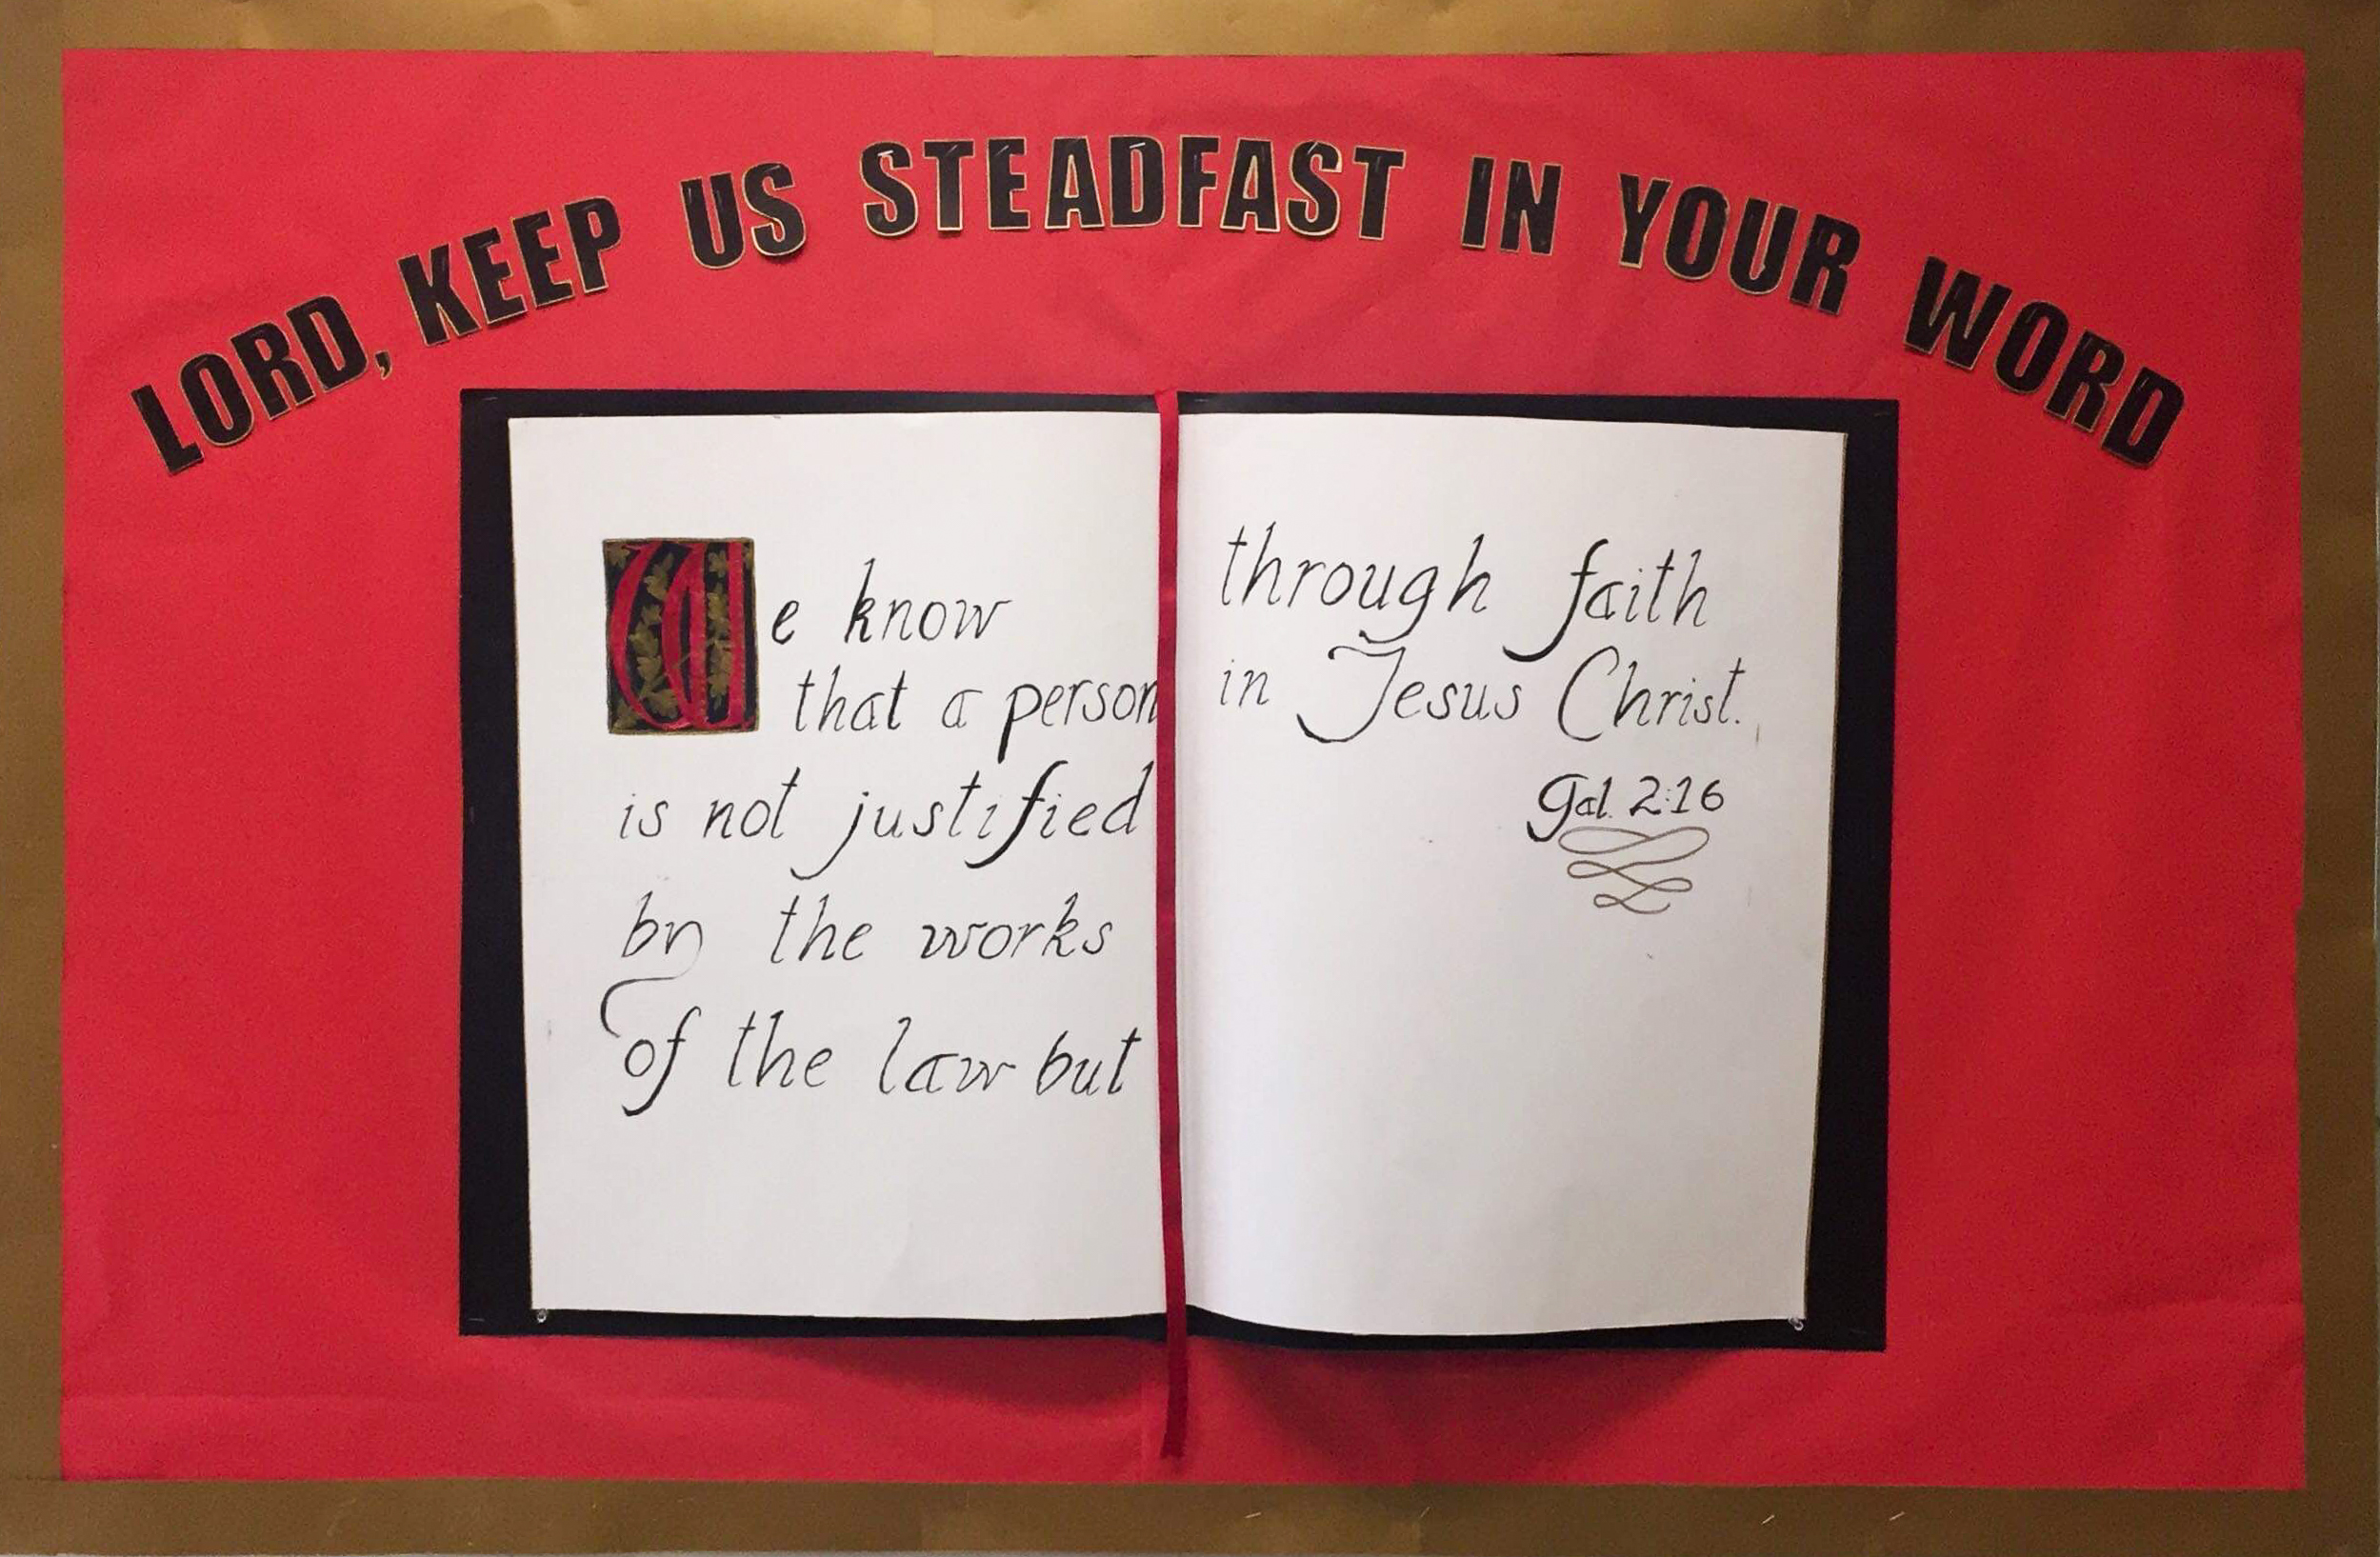 LORD, KEEP US STEADFAST IN YOUR WORD
We know
that a person
is not justified
by the works
of the law but
through faith
in Jesus Christ.
Gal. 2:16